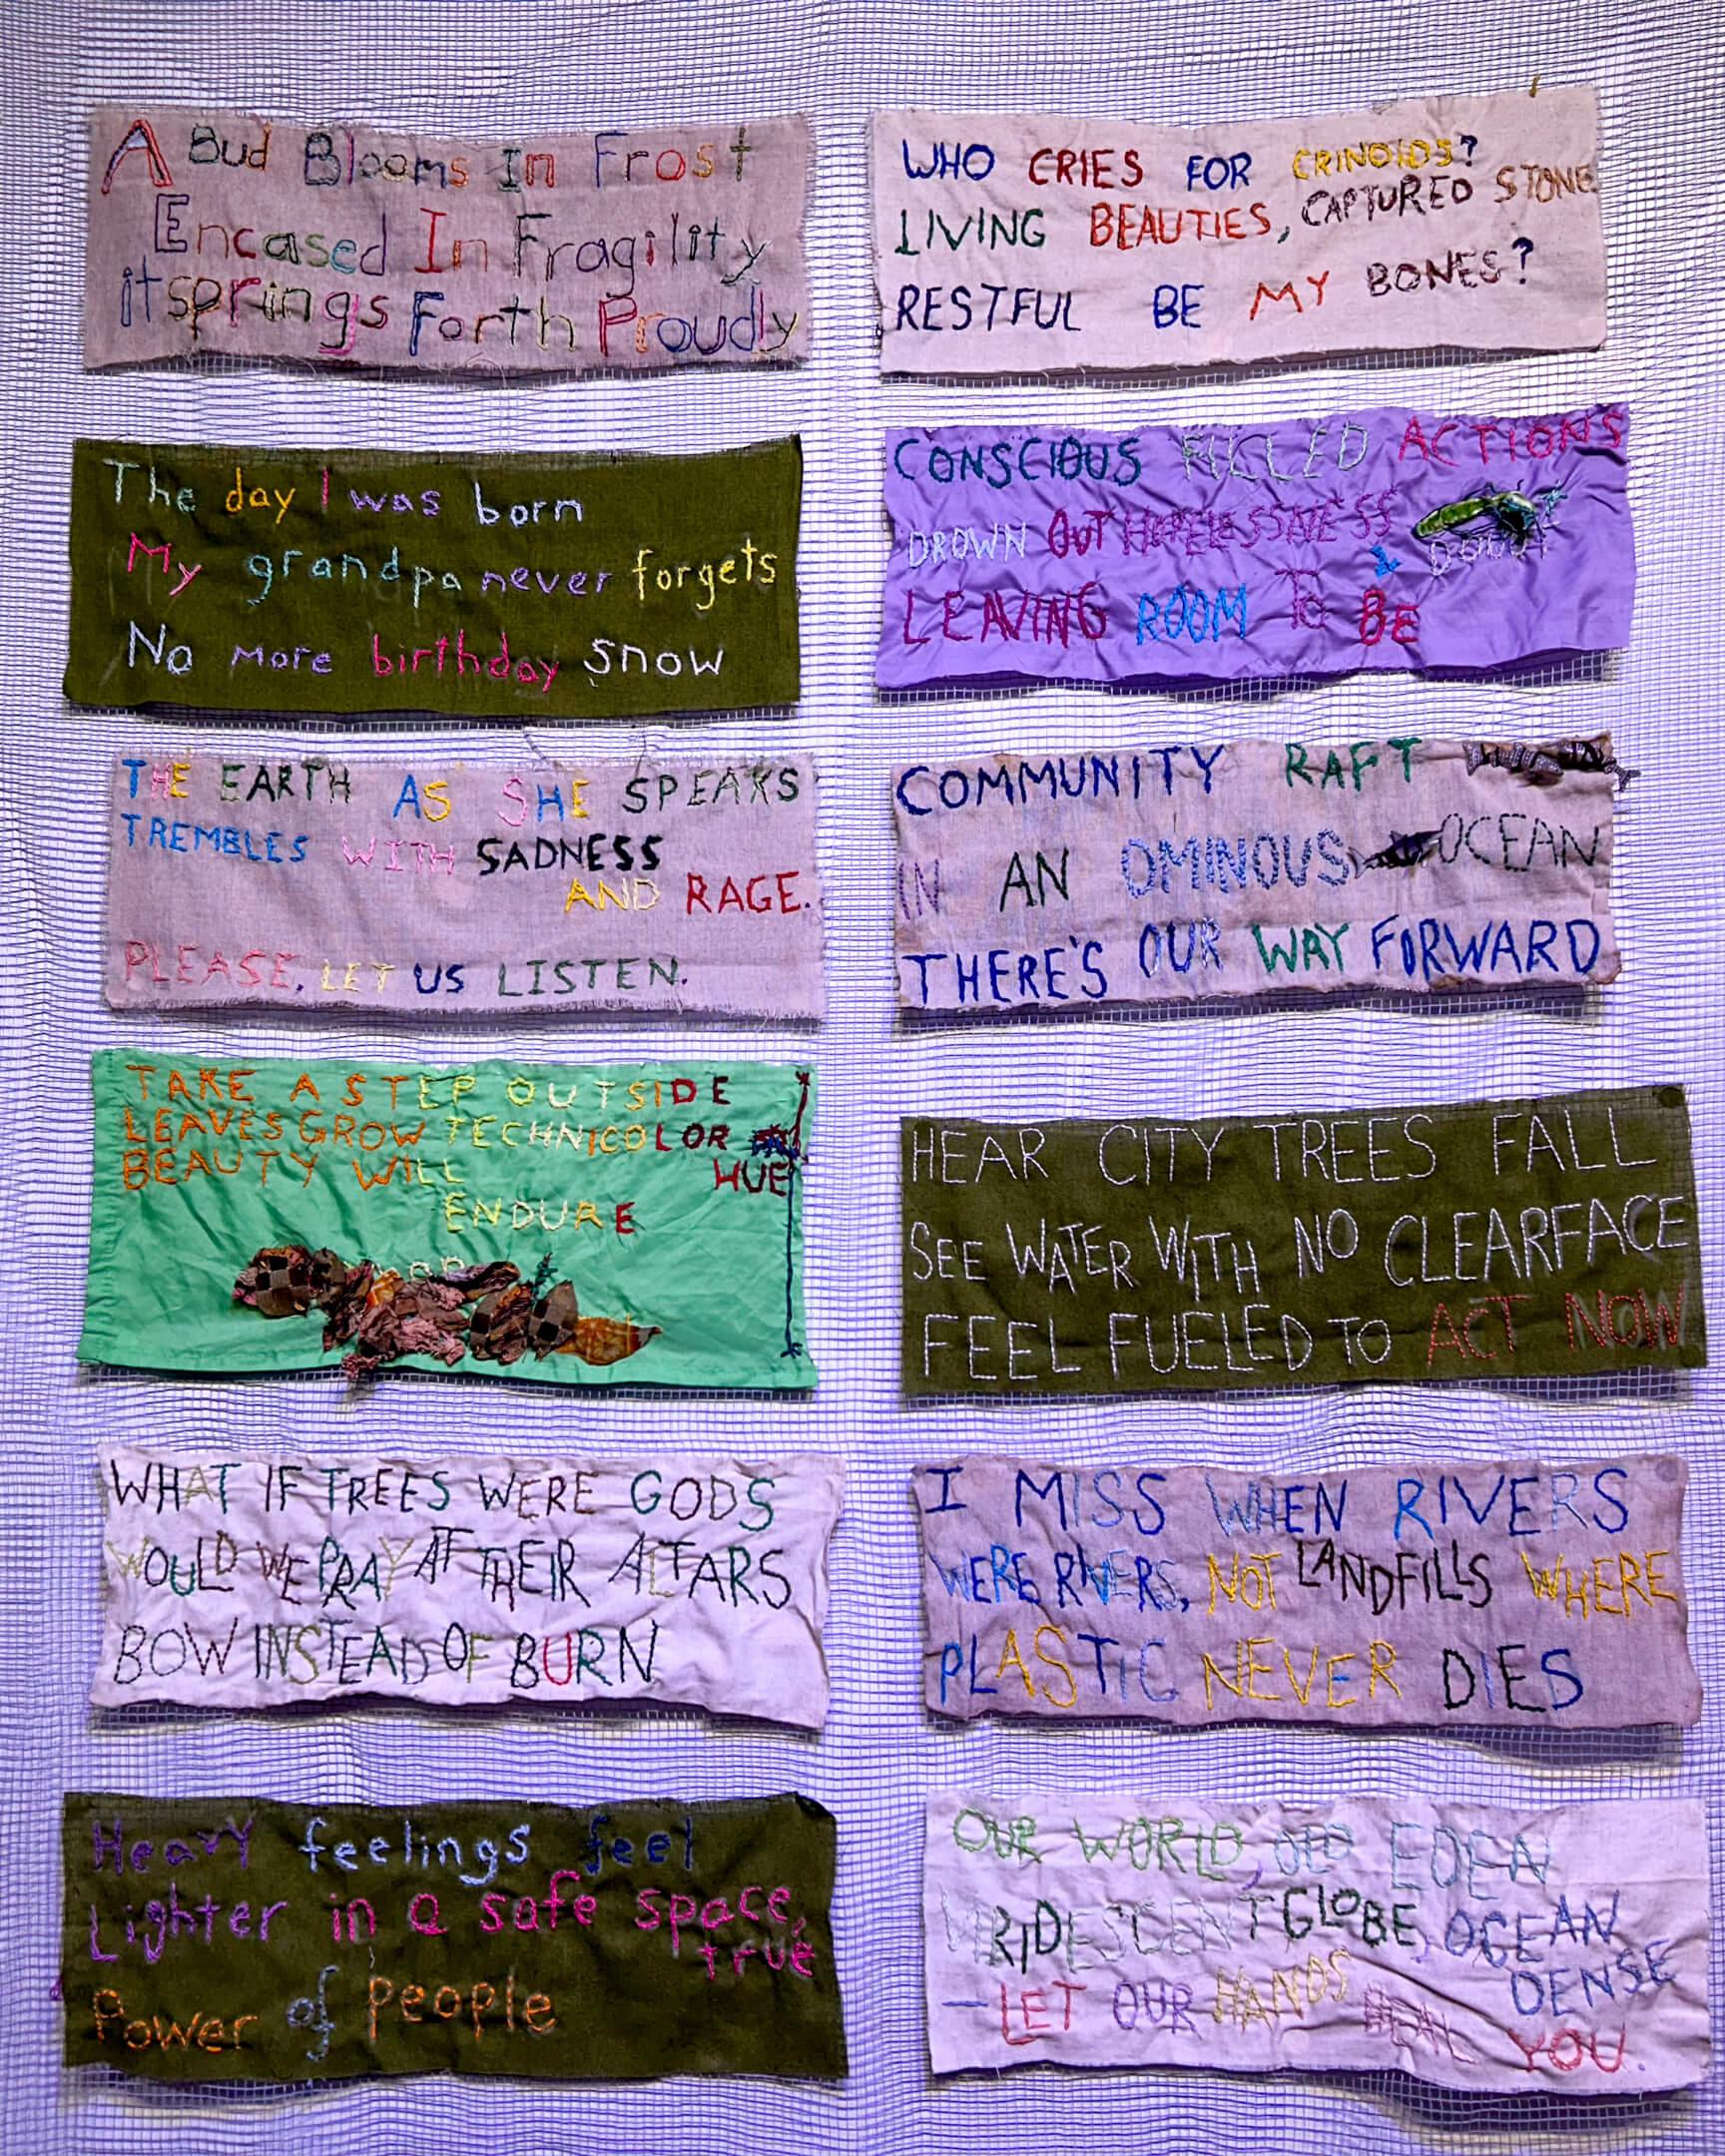 A Bud Blooms In Frost
Encased In Fragility
it springs Forth Proudly
WHO CRIES FOR CRINOIDS?
LIVING BEAUTIES, CAPTURED STONE
RESTFUL BE MY BONES?
The day I was born
My grandpa never forgets
No more birthday snow
CONSCIOUS FILLED ACTIONS
DROWN OUT HOPELESSNESS
& DOUBT
LEAVING ROOM TO BE
THE EARTH AS SHE SPEAKS
TREMBLES WITH SADNESS
AND RAGE.
PLEASE, LET US LISTEN.
COMMUNITY RAFT
IN AN OMINOUS OCEAN
THERE'S OUR WAY FORWARD
TAKE A STEP OUTSIDE
LEAVES GROW TECHNICOLOR
HUE
BEAUTY WILL
ENDURE
HEAR CITY TREES FALL
SEE WATER WITH NO CLEARFACE
FEEL FUELED TO ACT NOW
WHAT IF TREES WERE GODS
WOULD WE PRAY AT THEIR ALTARS
BOW INSTEAD OF BURN
I MISS WHEN RIVERS
WERE RIVERS, NOT LANDFILLS WHERE
PLASTIC NEVER DIES
Heavy feelings feel
Lighter in a safe space,
true
Power of people
OUR WORLD, OLD EDEN
IRIDESCENT GLOBE, OCEAN
DENSE
—LET OUR HANDS HEAL YOU.